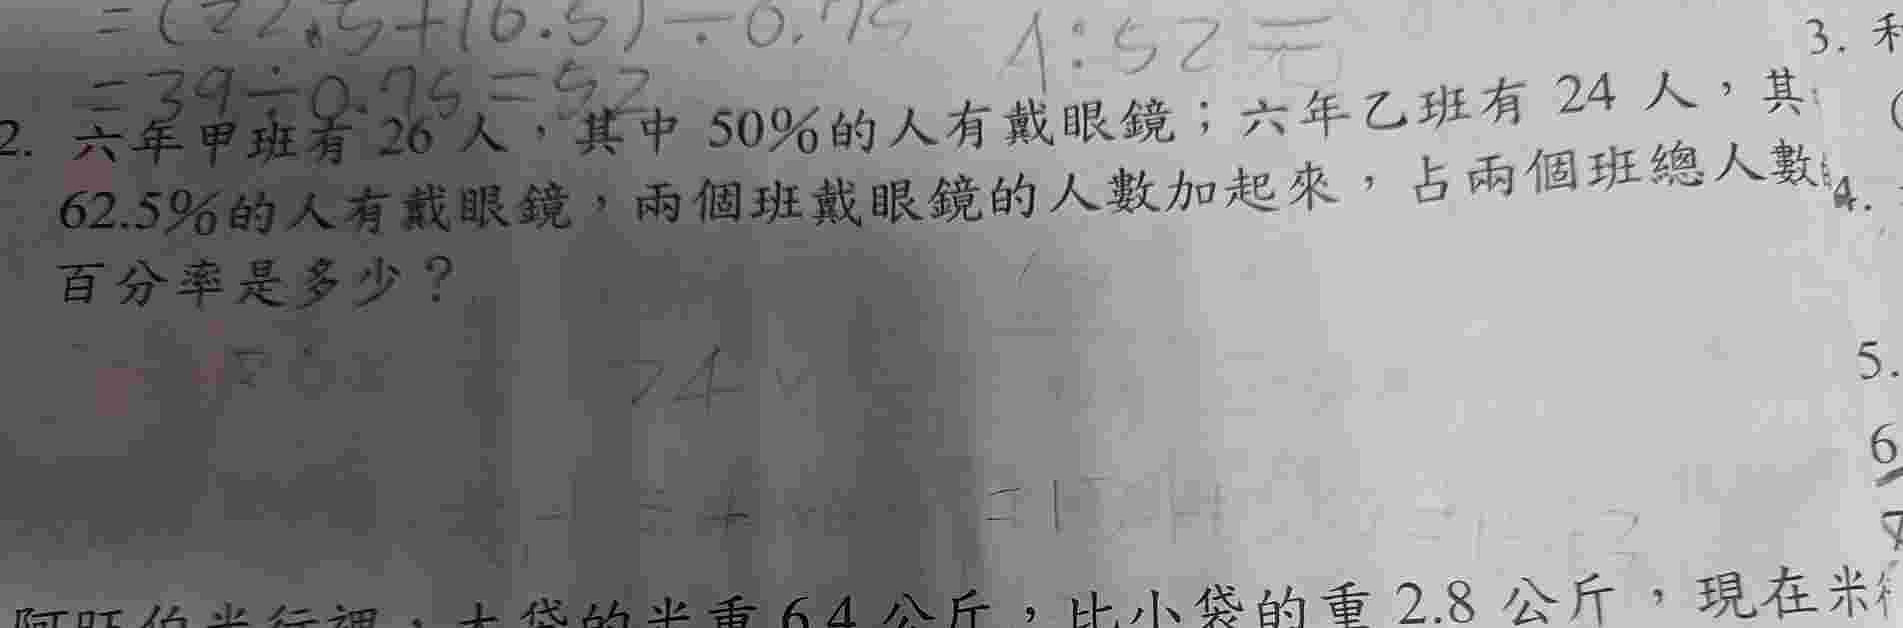 =(22.5+16.5)÷0.75
=39÷0.75=52
A:52元
3. 利
2. 六年甲班有 26 人，其中 50%的人有戴眼鏡；六年乙班有 24 人，其
62.5%的人有戴眼鏡，兩個班戴眼鏡的人數加起來，占兩個班總人數
4.
百分率是多少？
24
5.
6
阿旺伯米行裡，大袋的米重 6.4 公斤，比小袋的重 2.8 公斤，現在米行